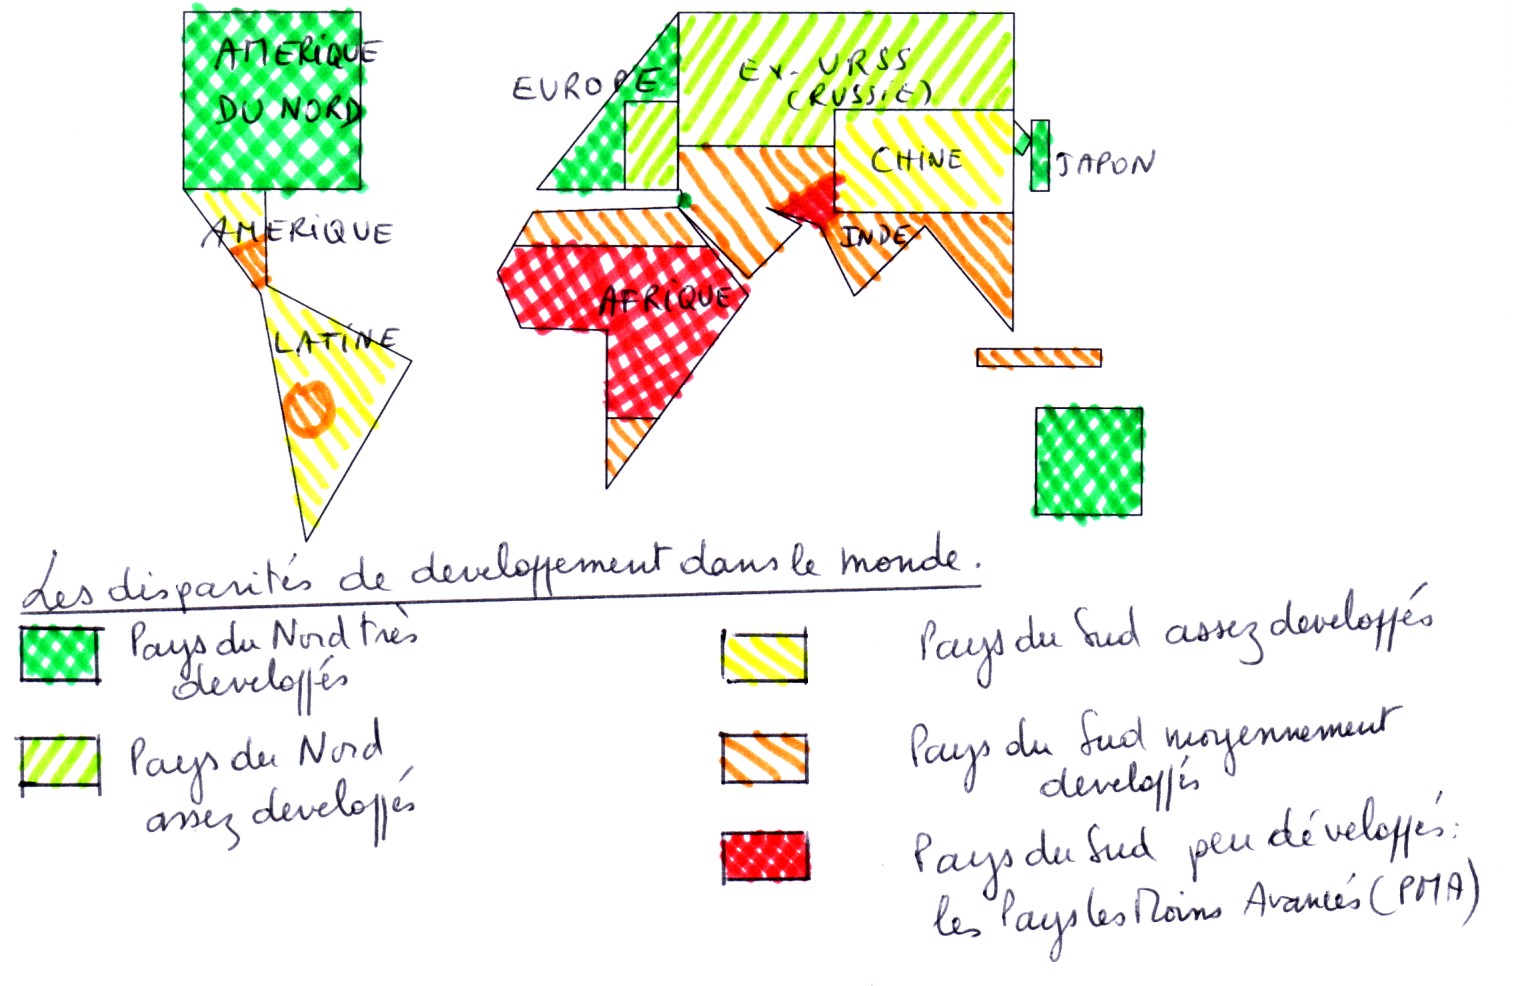 AMERIQUE
DU NORD
EUROPE
Ex-URSS
(RUSSIE)
CHINE
JAPON
AMERIQUE
INDE
AFRIQUE
LATINE
Les disparités de developpement dans le monde.
Pays du Nord très
developpés
Pays du Nord
assez developpés
Pays du Sud assez developpés
Pays du Sud moyennement
developpés
Pays du Sud peu développés:
les Pays les Moins Avancés (PMA)